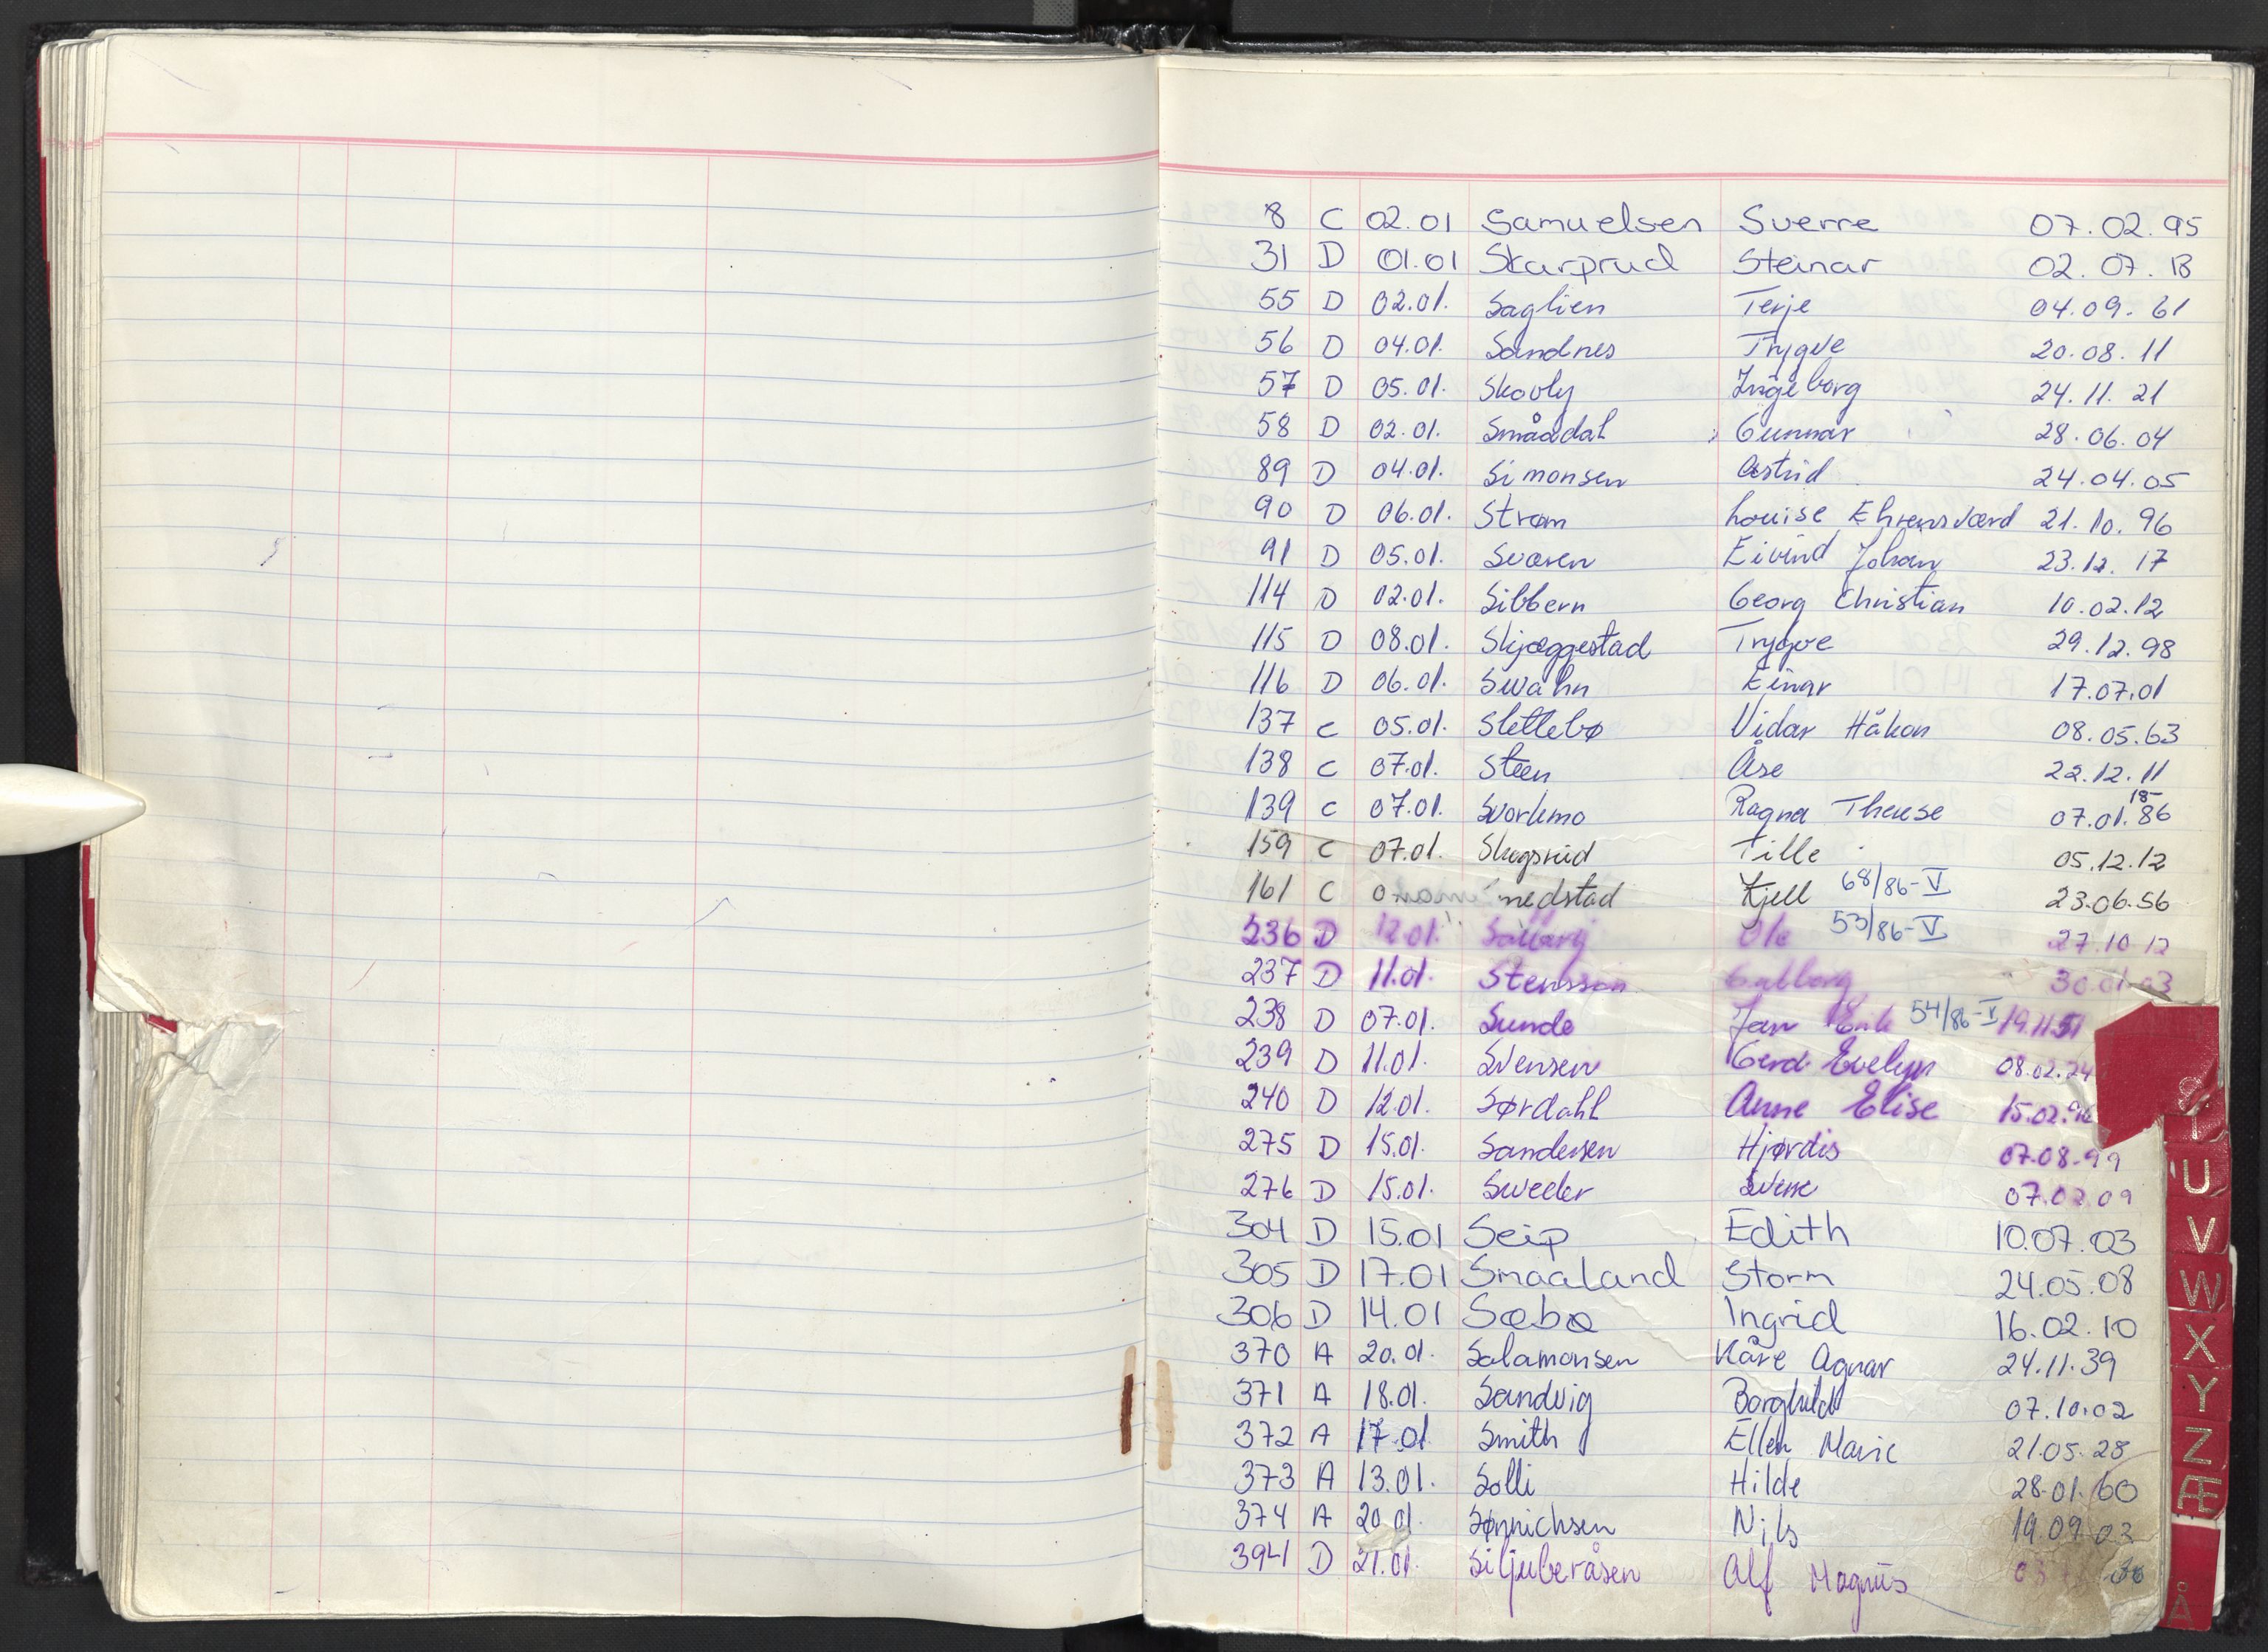 8 C 02.01 Samuelsen Sverre 07.02.95
31 D 01.01 Skarprud Steinar 02.07.13
55 D 02.01. Saglien Terje 04.09.61
56 D 04.01. Sandnes Trygve 20.08.11
57 D 05.01. Skovly Ingeborg 24.11.21
58 D 02.01. Smådahl Gunnar 28.06.04
89 D 04.01. Simonsen Astrid 24.04.05
90 D 06.01. Strøm Louise Ehrensværd 21.10.96
91 D 05.01. Svaren Eivind Johan 23.12.17
114 D 02.01. Sibbern Georg Christian 10.02.12
115 D 08.01. Skjæggestad Trygve 29.12.98
116 D 06.01. Swahn Einar 17.07.01
137 C 05.01. Slettebø Vidar Håkon 08.05.63
138 C 07.01. Steen Åse 22.12.11
139 C 07.01. Svorkmo Ragna Therese 07.01.86 18-
159 C 07.01. Skogsrud Tille 05.12.12
161 C nedstad Kjell 68/86-V 23.06.56
236 D 12.01. Ole 53/86-V 27.10.12
237 D 11.01. Stensson 30.01.03
238 D 07.01. Sunde Jan Erik 54/86-V 19.11.51
239 D 11.01. Svensen Gerd Evelyn 08.02.24
240 D 12.01. Sørdahl Anne Elise 15.02.96
275 D 15.01. Sandersen Hjørdis 07.08.99
276 D 15.01. Sweder Sverre 07.02.09
304 D 15.01 Seip Edith 10.07.03
305 D 17.01 Smaaland Storm 24.05.08
306 D 14.01 Sæbø Ingrid 16.02.10
370 A 20.01. Salamonsen Kåre Agnar 24.11.39
371 A 18.01. Sandvig Borghild 07.10.02
372 A 17.01 Smith Ellen Marie 21.05.28
373 A 13.01. Solli Hilde 28.01.60
374 A 20.01. Sønnichsen Nils 19.09.03
394 D 21.01. Siljuberåsen Alf Magnus
U
V
W
X
Y
Z
Æ
Å